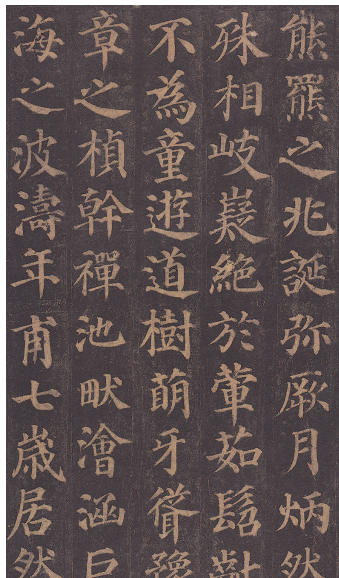 熊羆之兆誕弥厥月炳然
殊相岐嶷絕於葷茹髫齔
不為童遊道樹萌牙聳豫
章之楨幹禪池畎澮涵巨
海之波濤年甫七歲居然